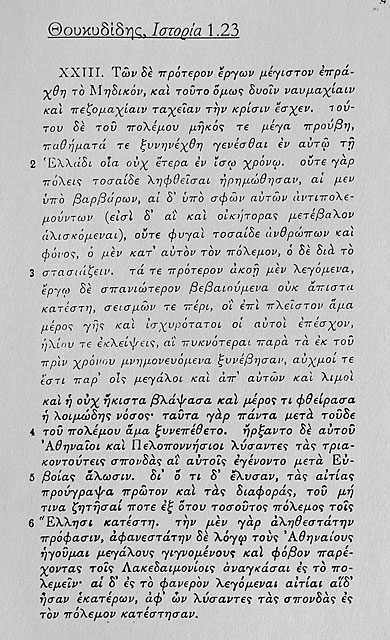 Θουκυδίδης, Ἱστορία 1.23
XXIII. Τῶν δὲ πρότερον ἔργων μέγιστον ἐπρά-
χθη τὸ Μηδικόν, καὶ τοῦτο ὅμως δυοῖν ναυμαχίαιν
καὶ πεζομαχίαιν ταχεῖαν τὴν κρίσιν ἔσχεν. τού-
του δὲ τοῦ πολέμου μῆκός τε μέγα προύβη,
παθήματά τε ξυνηνέχθη γενέσθαι ἐν αὐτῷ τῇ
2 Ἑλλάδι οἷα οὐχ ἕτερα ἐν ἴσῳ χρόνῳ. οὔτε γὰρ
πόλεις τοσαίδε ληφθεῖσαι ἠρημώθησαν, αἱ μὲν
ὑπὸ βαρβάρων, αἱ δ' ὑπὸ σφῶν αὐτῶν ἀντιπολε-
μούντων (εἰσὶ δ' αἳ καὶ οἰκήτορας μετέβαλον
ἁλισκόμεναι), οὔτε φυγαὶ τοσαίδε ἀνθρώπων καὶ
φόνος, ὁ μὲν κατ' αὐτὸν τὸν πόλεμον, ὁ δὲ διὰ τὸ
3 στασιάζειν. τά τε πρότερον ἀκοῇ μὲν λεγόμενα,
ἔργῳ δὲ σπανιώτερον βεβαιούμενα οὐκ ἄπιστα
κατέστη, σεισμῶν τε πέρι, οἳ ἐπὶ πλεῖστον ἅμα
μέρος γῆς καὶ ἰσχυρότατοι οἱ αὐτοὶ ἐπέσχον,
ἡλίου τε ἐκλείψεις, αἳ πυκνότεραι παρὰ τὰ ἐκ τοῦ
πρὶν χρόνου μνημονευόμενα ξυνέβησαν, αὐχμοί τε
ἔστι παρ' οἷς μεγάλοι καὶ ἀπ' αὐτῶν καὶ λιμοὶ
καὶ ἡ οὐχ ἥκιστα βλάψασα καὶ μέρος τι φθείρασα
ἡ λοιμώδης νόσος· ταῦτα γὰρ πάντα μετὰ τοῦδε
4 τοῦ πολέμου ἅμα ξυνεπέθετο. ἤρξαντο δὲ αὐτοῦ
Ἀθηναῖοι καὶ Πελοποννήσιοι λύσαντες τὰς τρια-
κοντούτεις σπονδὰς αἳ αὐτοῖς ἐγένοντο μετὰ Εὐ-
5 βοίας ἅλωσιν. δι' ὅ τι δ' ἔλυσαν, τὰς αἰτίας
προύγραψα πρῶτον καὶ τὰς διαφοράς, τοῦ μή
τινα ζητῆσαί ποτε ἐξ ὅτου τοσοῦτος πόλεμος τοῖς
6 Ἕλλησι κατέστη. τὴν μὲν γὰρ ἀληθεστάτην
πρόφασιν, ἀφανεστάτην δὲ λόγῳ τοὺς Ἀθηναίους
ἡγοῦμαι μεγάλους γιγνομένους καὶ φόβον παρέ-
χοντας τοῖς Λακεδαιμονίοις ἀναγκάσαι ἐς τὸ πο-
λεμεῖν· αἱ δ' ἐς τὸ φανερὸν λεγόμεναι αἰτίαι αἵδ'
ἦσαν ἑκατέρων, ἀφ' ὧν λύσαντες τὰς σπονδὰς ἐς
τὸν πόλεμον κατέστησαν.